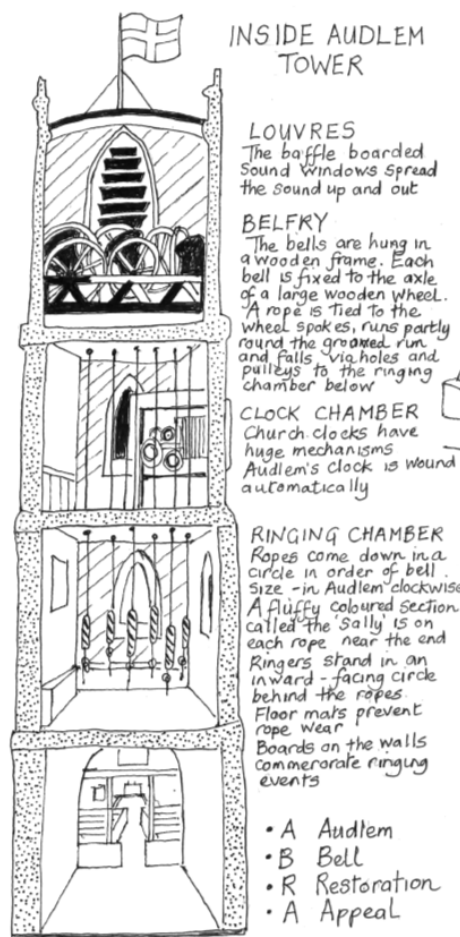 INSIDE AUDLEM
TOWER
LOUVRES
The baffle boarded
Sound windows spread
the sound up and out
BELFRY
The bells are hung in
a wooden frame. Each
bell is fixed to the axle
of a large wooden wheel.
A rope is tied to the
wheel spokes, runs partly
round the grooved run
and falls, via holes and
pulleys to the ringing
chamber below
CLOCK CHAMBER
Church clocks have
huge mechanisms
Audlem's clock is wound
automatically
RINGING CHAMBER
Ropes come down in a
circle in order of bell
size - in Audlem clockwise
A fluffy coloured section
called the 'Sally' is on
each rope near the end
Ringers stand in an
inward - facing circle
behind the ropes.
Floor mats prevent
rope wear
Boards on the walls
commerorate ringing
events
• A Audlem
• B Bell
• R Restoration
• A Appeal